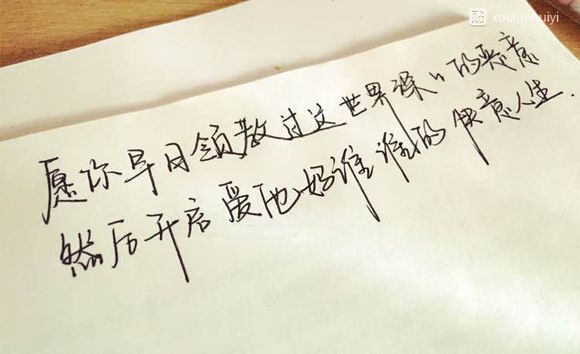 xueluohuiyi
愿你早日领教过这世界深〃的恶意
然后开启爱他妈谁谁的快意人生.